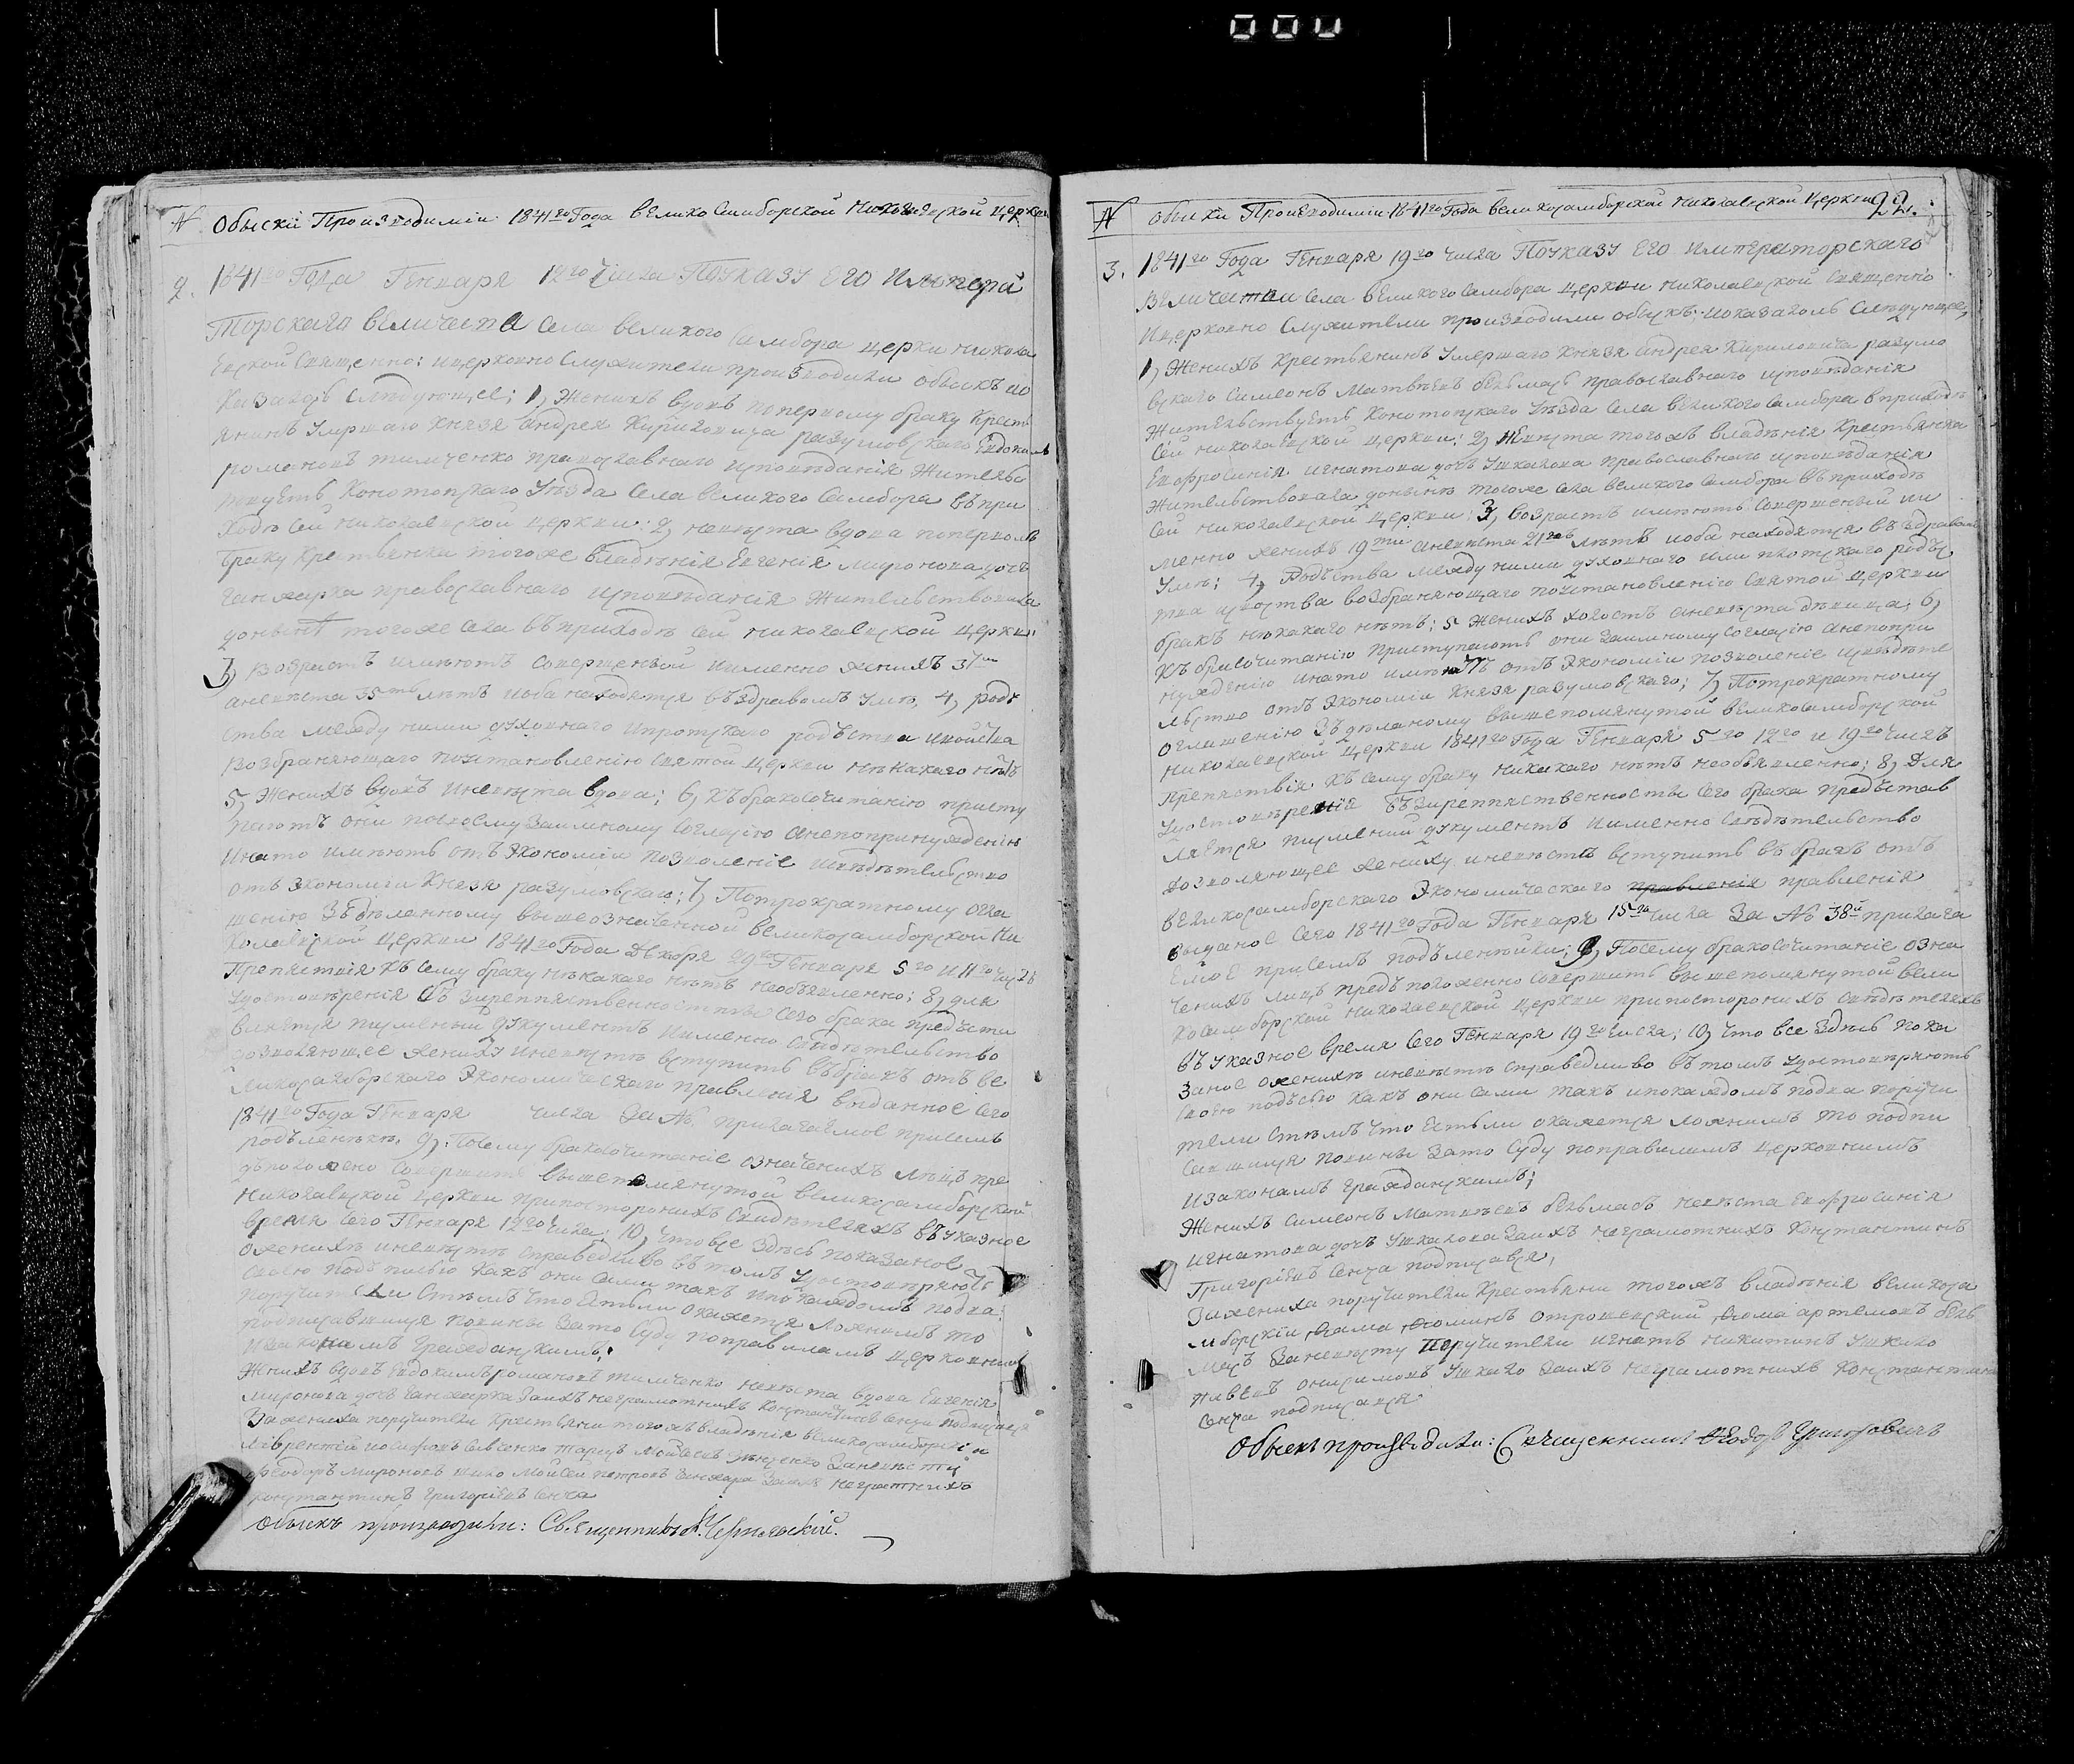 000
N Обыски Произведимiи 1841го Года велико Самборской Николаевской церкви
2. 1841го Года Генваря 12го Числа Поуказу Его Импера
торскаго величества села великого Самбора церкви никола
евской Священно: ицерковно Служители производили обыскъ ио
казалось Слѣдующее; 1, Женихъ вдовъ поперному браку кресть
янинъ умершаго князя андрея Кириловича разумовскаго Евдокимъ
романовъ тимченко православнаго исповѣданiя жительс
твуетъ конотопскаго уѣзда села великого Самбора въ при
ходѣ сей николаевской церкви: 2, невѣста вдова поперном
браку крестьянка тогоже владѣнiя Евгенiя миронова дочь
ганжирка православнаго исповѣданiя жительствовала
донынѣ тогоже села въ приходѣ сей николаевской церкви:
3, возрастъ имѣютъ совершеной иименно женихъ 37ми
аневѣста 35ть лѣтъ иоба находятся въ здравомъ умѣ, 4, родс
ства между ними духовнаго иплотскаго родъства исвойства
возбраняющаго поустановленiю святой церкви нѣкакого нѣтъ
5, Женихъ вдовъ иневѣста вдова; 6, къ бракосочитанiю присту
паютъ они посвоему взаимному согласiю анепопринужденiю
инато имѣютъ отъ Экономiи позволенiе исвѣдѣтельство
отъ Экономiи князя разумовскаго; 7, Потрократному огла
шенiю здѣланному вышеозначенной великосамборской ни
колаевской церкви 1841го Года Декабря 29го Генваря 5го и 11го числъ
Препятствiя къ сему браку нѣкакого нѣтъ необъявленно; 8, для
удостовѣренiя безпрепятственности сего брака предъста
вляется писменый документъ иименно свѣдѣтельство
дозволяющее жениху иневѣстѣ вступить въ бракъ отъ ве
ликосамборскаго Экономическаго правленiя выданное сего
1841го Года Генваря числа за № прилагаемое присемъ
подъленѣкѣ, 9, Посему бракосочитанiе означенихъ лицъ пре
дположено совершить вышепомянутой великосамборской
николаевской церкви припосторонихъ свидѣтеляхъ въ указное
время сего Генваря 12го числа; 10, чтовсе здѣсь показаное
оженихѣ иневѣстѣ справедливо въ томъ удостовѣряютъ
своею подъписью какъ они сами такъ ипокаждомъ подва
поручители стѣмъ что Естьли окажется ложнымъ то
подписавшiися повины зато суду поправиламъ церковнимъ
изаконамъ гражданскимъ:
Женихъ вдовъ Евдокимъ романовъ тимченко невѣста вдова Евгенiя
миронова дочь ганжирка заихъ неграмотнихъ константинъ сенча подписался
Зажениха поручители крестьяни тогожъ владѣнiя великосамборскiи
лаврентiй иосифовъ савченко тарасъ мойсеевъ заневѣсту
феодоръ мироновъ мойсей петровъ ганжара заихъ неграмтнихъ
константинъ григорiевъ сенча
Обыскъ производили: Священникъ
N Обыски Произведимiи 1841го Года великосамборской николаевской церкви 22.
3. 1841го Года Генваря 19го числа Поуказу Его Императорскаго
Величества села великого Самбора церкви николаевской Священно
Ицерковно служители производили обыскъ. иоказалось слѣдующее,
1, Женихъ крестьянинъ умершаго князя андрея Кириловича разумо
вскаго Симеонъ матвѣевъ бельмасъ православнаго исповѣданiя
жительствуетъ конотопскаго уѣзда села великого самбора вприходѣ
сей николаевской церкви: 2, невѣста тогожъ владѣнiя крестьянка
Евфросинiя игнатова дочь ушкалова православнаго исповѣданiя
жительствовала донынѣ тогоже села великого самбора въ приходѣ
сей николаевской церкви: 3, возрастъ имѣютъ совершеный ии
менно женихъ 19ти аневѣста 21го лѣтъ иоба находятся въ здравомъ
умѣ: 4, Родъства между ними духовнаго или плотскаго родъс
тва исвоства возбраняющаго поустановленiю святой церкви
бракъ нѣкакого нѣтъ; 5 Женихъ холостъ аневѣста дѣвица; 6,
къ бракосочитанiю приступаютъ они взаимному согласiю анепопри
нужденiю инато имѣютъ отъ Экономiи позволенiе исвѣдѣте
льство отъ Экономiи князя разумовскаго; 7, Потрократному
оглашенiю здѣланому вышепомянутой великосамборской
николаевской церкви 1841го Года Генваря 5го 12го и 19го числъ
Препятствiя къ сему браку никакого нѣтъ необъявленно; 8, Для
удостовѣренiя безпрепятственности сего брака предъстав
ляется писмений документъ иименно свѣдѣтельство
дозволяющее жениху иневѣстѣ вступить въ бракъ отъ
великосамборскаго Экономическаго правленiя правленiя
выданое сего 1841го Года Генваря 15го числа за № 38й прилага
емое присемъ подъленѣйки; 9, Посему бракосочитанiе озна
ченихъ лицъ предъположено совершить вышепомянутой вели
косамборской николаевской церкви припосторонихъ свѣдѣтеляхъ
въ указное время сего Генваря 19го числа; 10, что все здѣсь пока
заное оженихѣ иневѣстѣ справедливо въ томъ удостовѣряютъ
своею подъсью какъ они сами такъ ипокаждомъ подва поручи
тели стѣмъ что Естьли окажется ложнимъ то подпи
савшиися повины зато суду поправиламъ церковнимъ
изаконамъ гражданскимъ;
Женихъ симеонъ матвѣевъ бельмасъ невѣста Евфросинiя
игнатова дочь ушкалова заихъ неграмотнихъ константинъ
григорiевъ сенча подписався,
Зажениха поручители крестьяни тогожъ владѣнiя великоса
мборскiи фома отрошевский фома артемовъ бель
масъ заневѣсту поручители игнатъ никитинъ ушкало
онисимовъ ушкало заихъ неграмотнихъ константинъ
сенча подписался
Обыскъ производили: Священникъ Феодоръ Григоровичъ